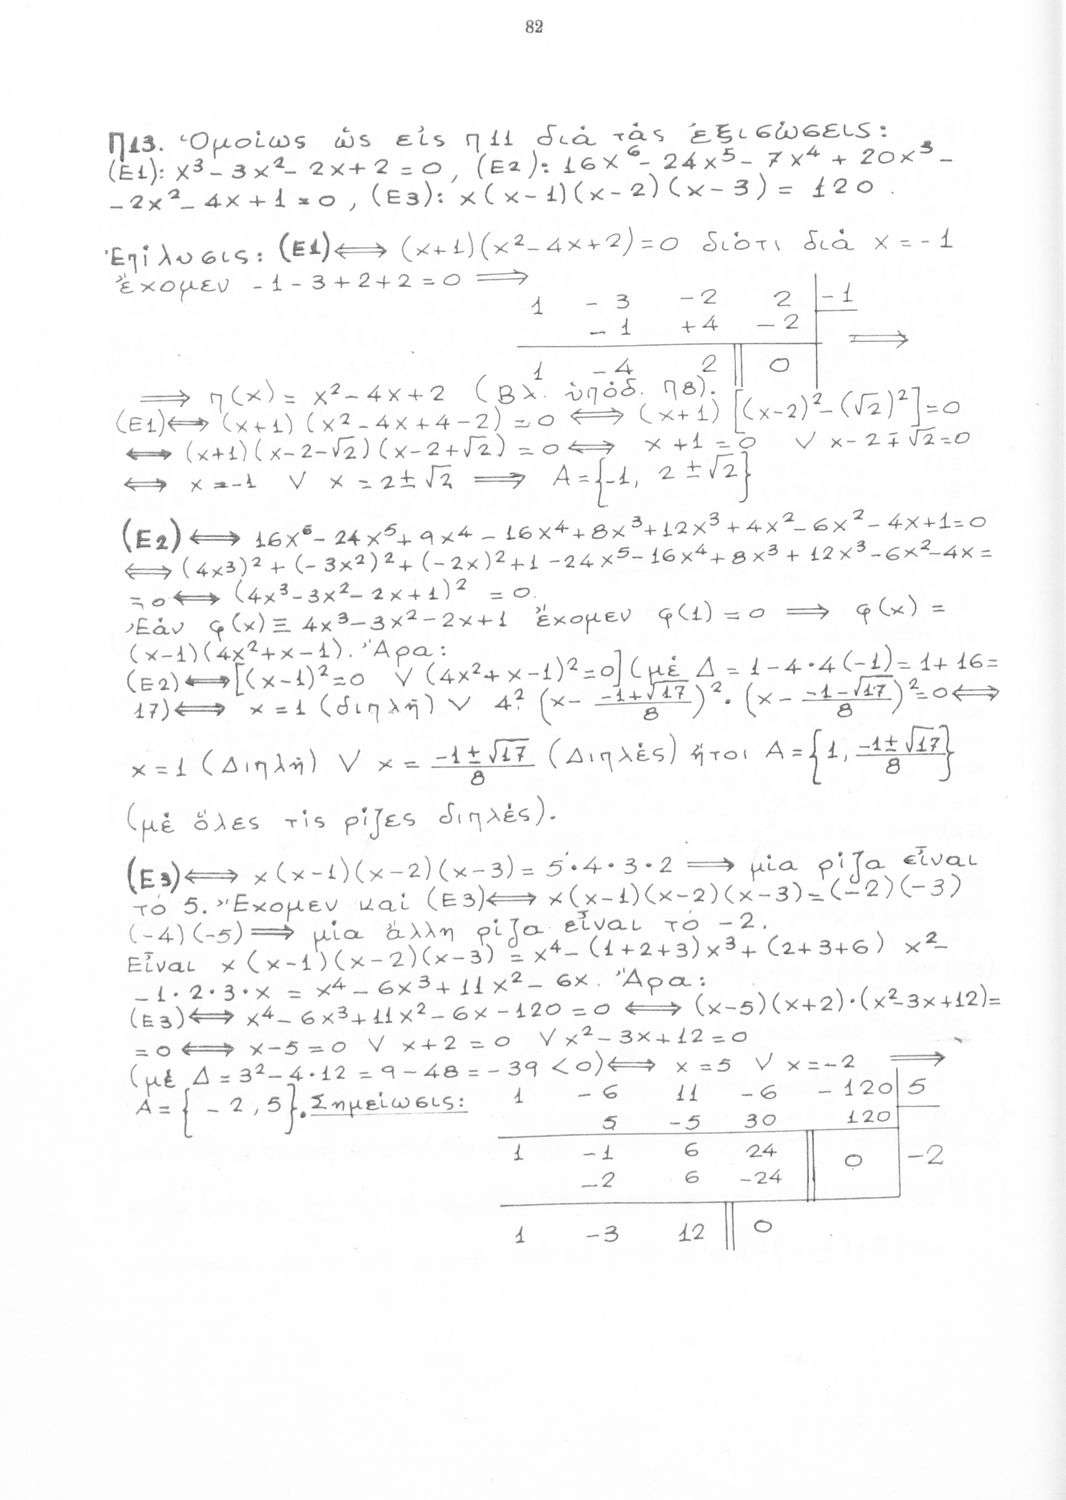 82
Π13. Ὁμοίως ὡς εἰς π11 διὰ τὰς ἐξισώσεις:
(Ε1): x³-3x²-2x+2=0, (Ε2): 16x⁶-24x⁵-7x⁴+20x³-
-2x²-4x+1=0, (Ε3): x(x-1)(x-2)(x-3)=120.
Ἐπίλυσις: (Ε1)⟺(x+1)(x²-4x+2)=0 διότι διὰ x=-1
ἔχομεν -1-3+2+2=0 ⟹
1 -3 -2 2 | -1
-1 +4 -2 ⟹
1 -4 2 || 0
⟹ π(x)=x²-4x+2 (βλ. ὑπόδ. π8).
(Ε1)⟺(x+1)(x²-4x+4-2)=0 ⟺ (x+1)[(x-2)²-(√2)²]=0
⟺ (x+1)(x-2-√2)(x-2+√2)=0 ⟺ x+1=0 ∨ x-2∓√2=0
⟺ x=-1 ∨ x=2±√2 ⟹ A={-1, 2±√2}
(Ε2)⟺16x⁶-24x⁵+9x⁴-16x⁴+8x³+12x³+4x²-6x²-4x+1=0
⟺(4x³)²+(-3x²)²+(-2x)²+1-24x⁵-16x⁴+8x³+12x³-6x²-4x=
=0⟺(4x³-3x²-2x+1)²=0.
Ἐὰν φ(x)≡4x³-3x²-2x+1 ἔχομεν φ(1)=0 ⟹ φ(x)=
(x-1)(4x²+x-1). Ἄρα:
(Ε2)⟺[(x-1)²=0 ∨ (4x²+x-1)²=0] (μὲ Δ=1-4·4(-1)=1+16=
17)⟺ x=1 (διπλῆ) ∨ 4²·(x-(-1+√17)/8)²·(x-(-1-√17)/8)²=0⟺
x=1 (Διπλῆ) ∨ x=(-1±√17)/8 (Διπλές) ἤτοι A={1, (-1±√17)/8}
(μὲ ὅλες τὶς ρίζες διπλές).
(Ε3)⟺x(x-1)(x-2)(x-3)=5·4·3·2 ⟹ μία ρίζα εἶναι
τὸ 5. Ἔχομεν καὶ (Ε3)⟺x(x-1)(x-2)(x-3)=(-2)(-3)
(-4)(-5)⟹ μία ἄλλη ρίζα εἶναι τὸ -2.
Εἶναι x(x-1)(x-2)(x-3)=x⁴-(1+2+3)x³+(2+3+6) x²-
-1·2·3·x = x⁴-6x³+11x²-6x. Ἄρα:
(Ε3)⟺x⁴-6x³+11x²-6x-120=0 ⟺ (x-5)(x+2)·(x²-3x+12)=
=0⟺ x-5=0 ∨ x+2=0 ∨ x²-3x+12=0
(μὲ Δ=3²-4·12=9-48=-39<0)⟺ x=5 ∨ x=-2 ⟹
A={-2,5}. Σημείωσις:
1 -6 11 -6 -120 | 5
5 -5 30 120
1 -1 6 24 || 0 | -2
-2 6 -24
1 -3 12 || 0